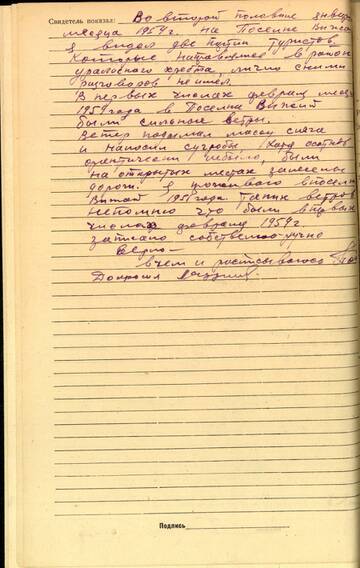 Свидетель показал: Во второй половине января
месяца 1959 г. на Поселке Вижай
я видел две группы туристов,
которые направлялись в район
уральского хребта, лично с ними
разговоров не имел.
В первых числах февраля месяца
1959 года в Поселке Вижай
были сильные ветры.
Ветер поднимал массы снега
и наносил сугробы,
практически не было, были
на открытых местах занесены
дороги. Я проживаю в поселке
Вижай с 1951 года. Таких ветров
не помню что были в первых
числах февраля 1959 г.
записано собственно-ручно
Верно
в чем и расписываюсь
Допросил
Подпись